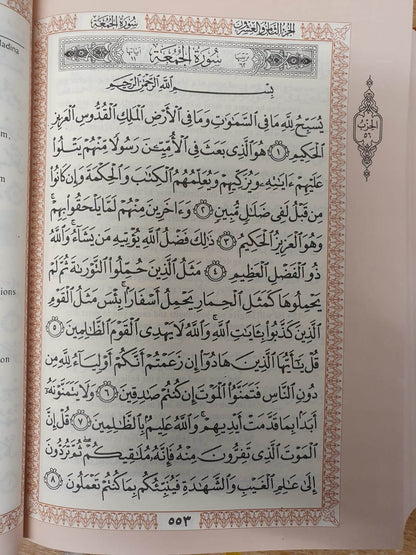 ladina
m,
n
ere
ions
on
سُورَةُ الجُمُعَة
الجُزْءُ الثَّامِنُ وَالعِشْرُونَ
آيَاتُهَا ١١ سُورَةُ الجُمُعَةِ تَرْتِيبُهَا ٦٢
بِسْمِ اللَّهِ الرَّحْمَٰنِ الرَّحِيمِ
يُسَبِّحُ لِلَّهِ مَا فِي السَّمَٰوَٰتِ وَمَا فِي الْأَرْضِ الْمَلِكِ الْقُدُّوسِ الْعَزِيزِ
الْحَكِيمِ ١ هُوَ الَّذِي بَعَثَ فِي الْأُمِّيِّـۧنَ رَسُولًا مِّنْهُمْ يَتْلُوا
عَلَيْهِمْ ءَايَٰتِهِۦ وَيُزَكِّيهِمْ وَيُعَلِّمُهُمُ الْكِتَٰبَ وَالْحِكْمَةَ وَإِن كَانُوا
مِن قَبْلُ لَفِي ضَلَٰلٍ مُّبِينٍ ٢ وَءَاخَرِينَ مِنْهُمْ لَمَّا يَلْحَقُوا بِهِمْ ۚ
وَهُوَ الْعَزِيزُ الْحَكِيمُ ٣ ذَٰلِكَ فَضْلُ اللَّهِ يُؤْتِيهِ مَن يَشَاءُ ۚ وَاللَّهُ
ذُو الْفَضْلِ الْعَظِيمِ ٤ مَثَلُ الَّذِينَ حُمِّلُوا التَّوْرَىٰةَ ثُمَّ لَمْ
يَحْمِلُوهَا كَمَثَلِ الْحِمَارِ يَحْمِلُ أَسْفَارًا ۚ بِئْسَ مَثَلُ الْقَوْمِ
الَّذِينَ كَذَّبُوا بِـَٔايَٰتِ اللَّهِ ۚ وَاللَّهُ لَا يَهْدِي الْقَوْمَ الظَّٰلِمِينَ ٥
قُلْ يَٰٓأَيُّهَا الَّذِينَ هَادُوا إِن زَعَمْتُمْ أَنَّكُمْ أَوْلِيَاءُ لِلَّهِ مِن
دُونِ النَّاسِ فَتَمَنَّوُا الْمَوْتَ إِن كُنتُمْ صَٰدِقِينَ ٦ وَلَا يَتَمَنَّوْنَهُۥٓ
أَبَدًا بِمَا قَدَّمَتْ أَيْدِيهِمْ ۚ وَاللَّهُ عَلِيمٌ بِالظَّٰلِمِينَ ٧ قُلْ إِنَّ
الْمَوْتَ الَّذِي تَفِرُّونَ مِنْهُ فَإِنَّهُۥ مُلَٰقِيكُمْ ۖ ثُمَّ تُرَدُّونَ
إِلَىٰ عَٰلِمِ الْغَيْبِ وَالشَّهَٰدَةِ فَيُنَبِّئُكُم بِمَا كُنتُمْ تَعْمَلُونَ ٨
٥٥٣
الحِزْب
٥٦